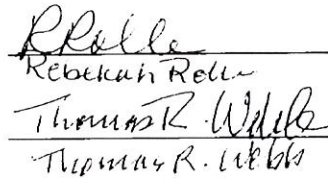 RRolle
Rebekah Rolle
Thomas R. Webb
Thomas R. Webb